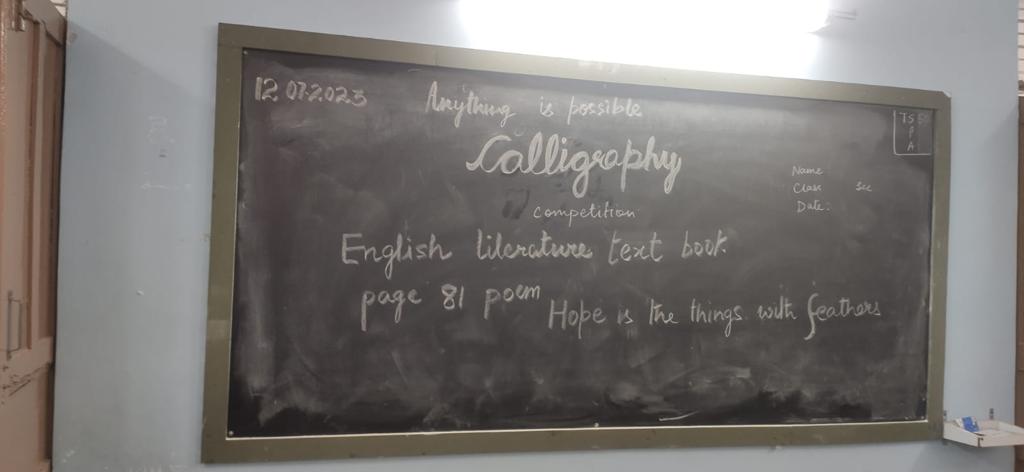 12 07.2023
Anything is possible
TS
P
A
Calligraphy
Name
Class Sec
Date:
competition
English literature text book
page 81 poem
Hope is the things with feathers